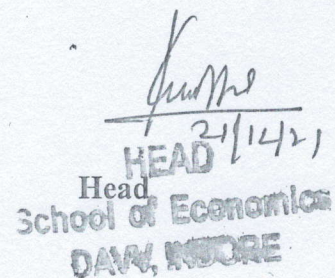 21/12/21
HEAD
Head
School of Economics
DAVV, INDORE